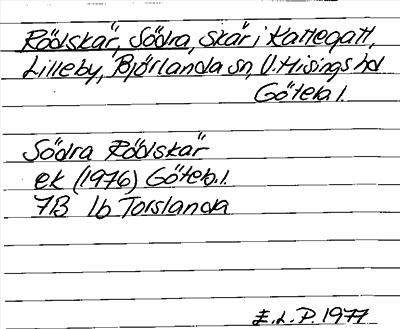 Rödskär, Södra, skär i Kattegatt,
Lilleby, Björlanda sn, V. Hisings hd
Göteb l.
Södra Rödskär
ek (1976) Göteb. l.
7B 1b Torslanda
E. L. P. 1977